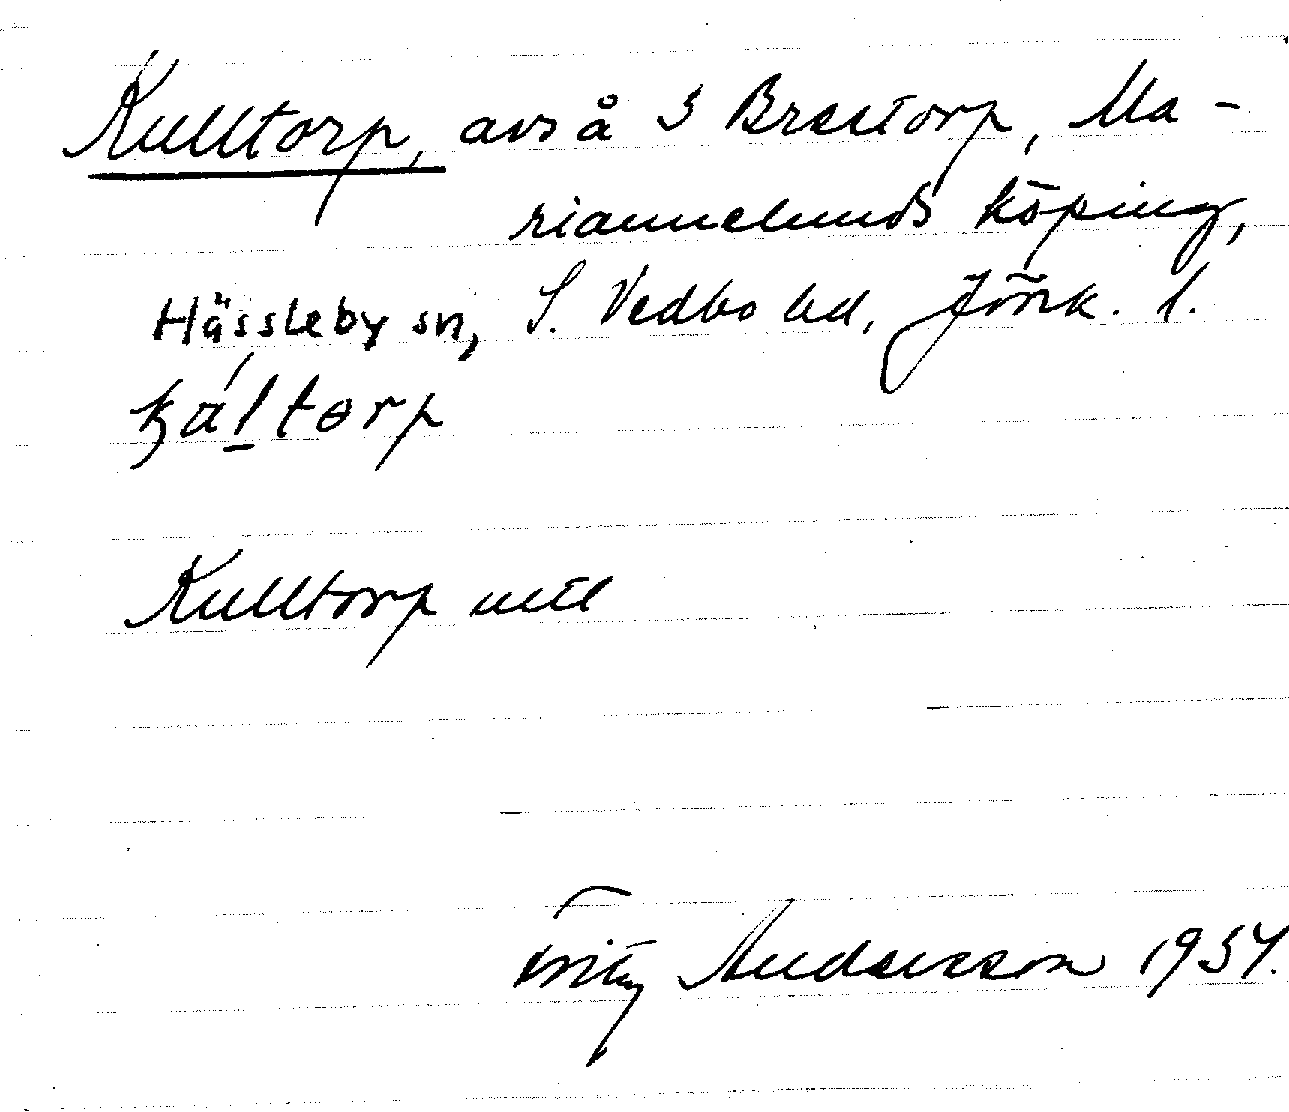 Kulltorp, avs å S Brostorp, Ma-
riannelunds köping,
Hässleby sn, S. Vedbo hd, Jönk. l.
Kulltorp
Fritz Andersson 1934.